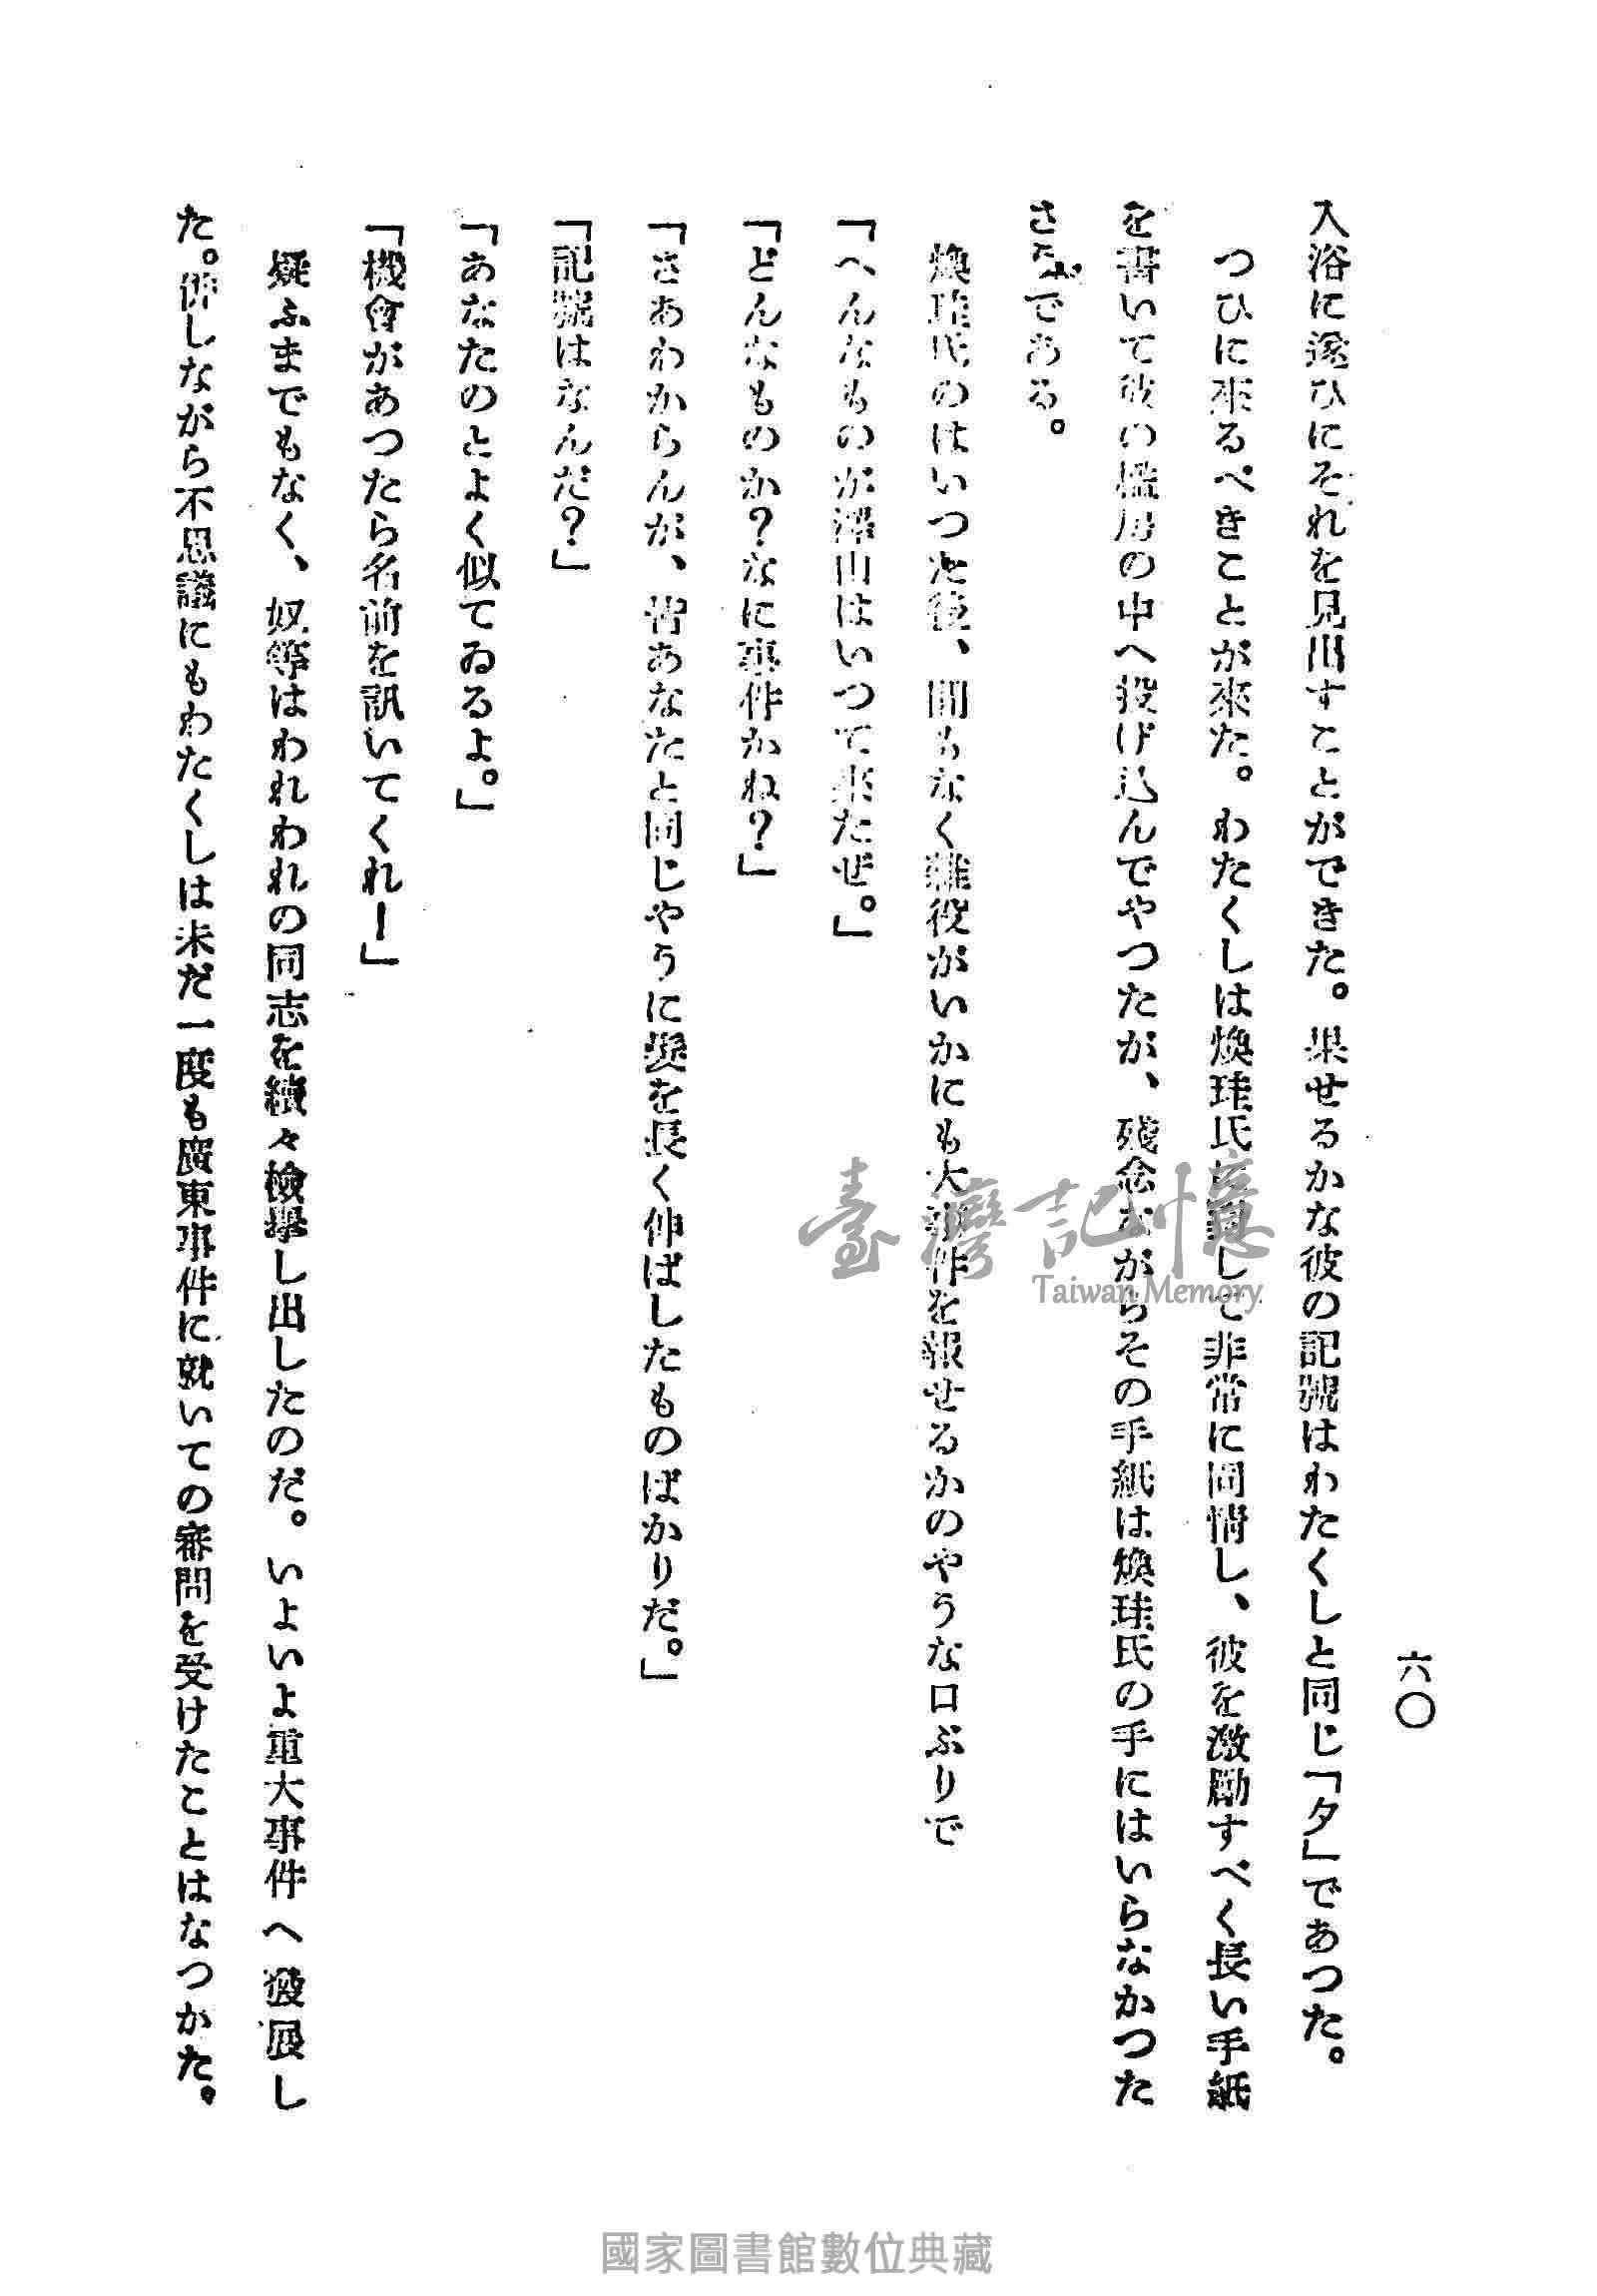 六〇
入浴に遂ひにそれを見出すことができた。果せるかな彼の記號はわたくしと同じ「タ」であつた。
つひに來るべきことが來た。わたくしは煥珪氏に對して非常に同情し、彼を激勵すべく長い手紙
を書いて彼の檻房の中へ投げ込んでやつたが、殘念ながらその手紙は煥珪氏の手にはいらなかつた
さうである。
煥珪氏のはいつた後、間もなく雜役がいかにも大事件を報せるかのやうな口ぶりで
「へんなものが澤山はいつて來たぜ。」
「どんなものか?なに事件かね?」
「さあわからんが、皆あなたと同じやうに髮を長く伸ばしたものばかりだ。」
「記號はなんだ?」
「あなたのとよく似てゐるよ。」
「機會があつたら名前を訊いてくれー」
疑ふまでもなく、奴等はわれわれの同志を續々檢擧し出したのだ。いよいよ重大事件へ發展し
た。併しながら不思議にもわたくしは未だ一度も廣東事件に就いての審問を受けたことはなつかた。
臺灣記憶
Taiwan Memory
國家圖書館數位典藏